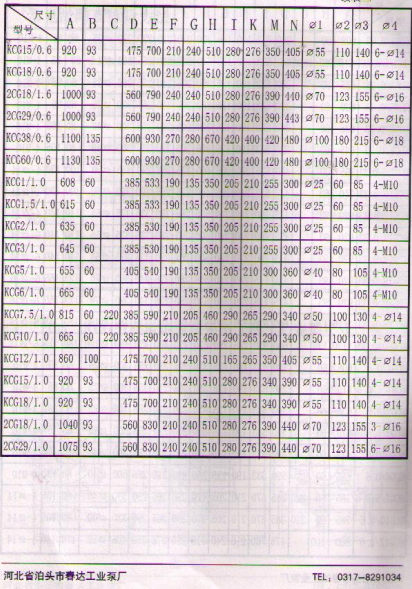 尺寸 A B C D E F G H I K M N ⌀1 ⌀2 ⌀3 ⌀4
型号
KCG15/0.6 920 93 475 700 210 240 510 280 276 350 405 ⌀55 110 140 6-⌀14
KCG18/0.6 920 93 475 700 210 240 510 280 276 350 405 ⌀55 110 140 6-⌀14
2CG18/1.6 1000 93 560 790 240 240 510 280 276 390 440 ⌀70 123 155 6-⌀16
2CG29/0.6 1000 93 560 790 240 240 510 280 276 390 443 ⌀70 123 155 6-⌀16
KCG38/0.6 1100 135 600 930 270 280 670 420 400 420 480 ⌀100 180 215 6-⌀18
KCG60/0.6 1130 135 600 930 270 280 670 420 400 420 480 ⌀100 180 215 6-⌀18
KCG1/1.0 608 60 385 533 190 135 350 205 210 255 300 ⌀25 60 85 4-M10
KCG1.5/1.0 615 60 385 533 190 135 350 205 210 255 300 ⌀25 60 85 4-M10
KCG2/1.0 635 60 385 530 190 135 350 205 210 255 300 ⌀25 60 85 4-M10
KCG3/1.0 645 60 385 530 190 135 350 205 210 255 300 ⌀25 60 85 4-M10
KCG5/1.0 655 60 405 540 190 135 350 205 210 300 360 ⌀40 80 105 4-M10
KCG6/1.0 665 60 405 540 190 135 350 205 210 300 360 ⌀40 80 105 4-M10
KCG7.5/1.0 815 60 220 385 590 210 205 460 290 265 290 340 ⌀50 100 130 4-⌀14
KCG10/1.0 665 60 220 385 590 210 205 460 290 265 290 340 ⌀50 100 130 4-⌀14
KCG12/1.0 860 100 475 700 210 240 510 165 265 350 405 ⌀55 110 140 4-⌀14
KCG15/1.0 920 93 475 700 210 240 510 280 276 340 390 ⌀55 110 140 4-⌀14
KCG18/1.0 920 93 475 700 210 240 510 280 276 340 390 ⌀55 110 140 4-⌀14
2CG18/1.0 1040 93 560 830 240 240 510 280 276 390 440 ⌀70 123 155 3-⌀16
2CG29/1.0 1075 93 560 830 240 240 510 280 276 390 440 ⌀70 123 155 6-⌀16
河北省泊头市春达工业泵厂 TEL：0317-8291034